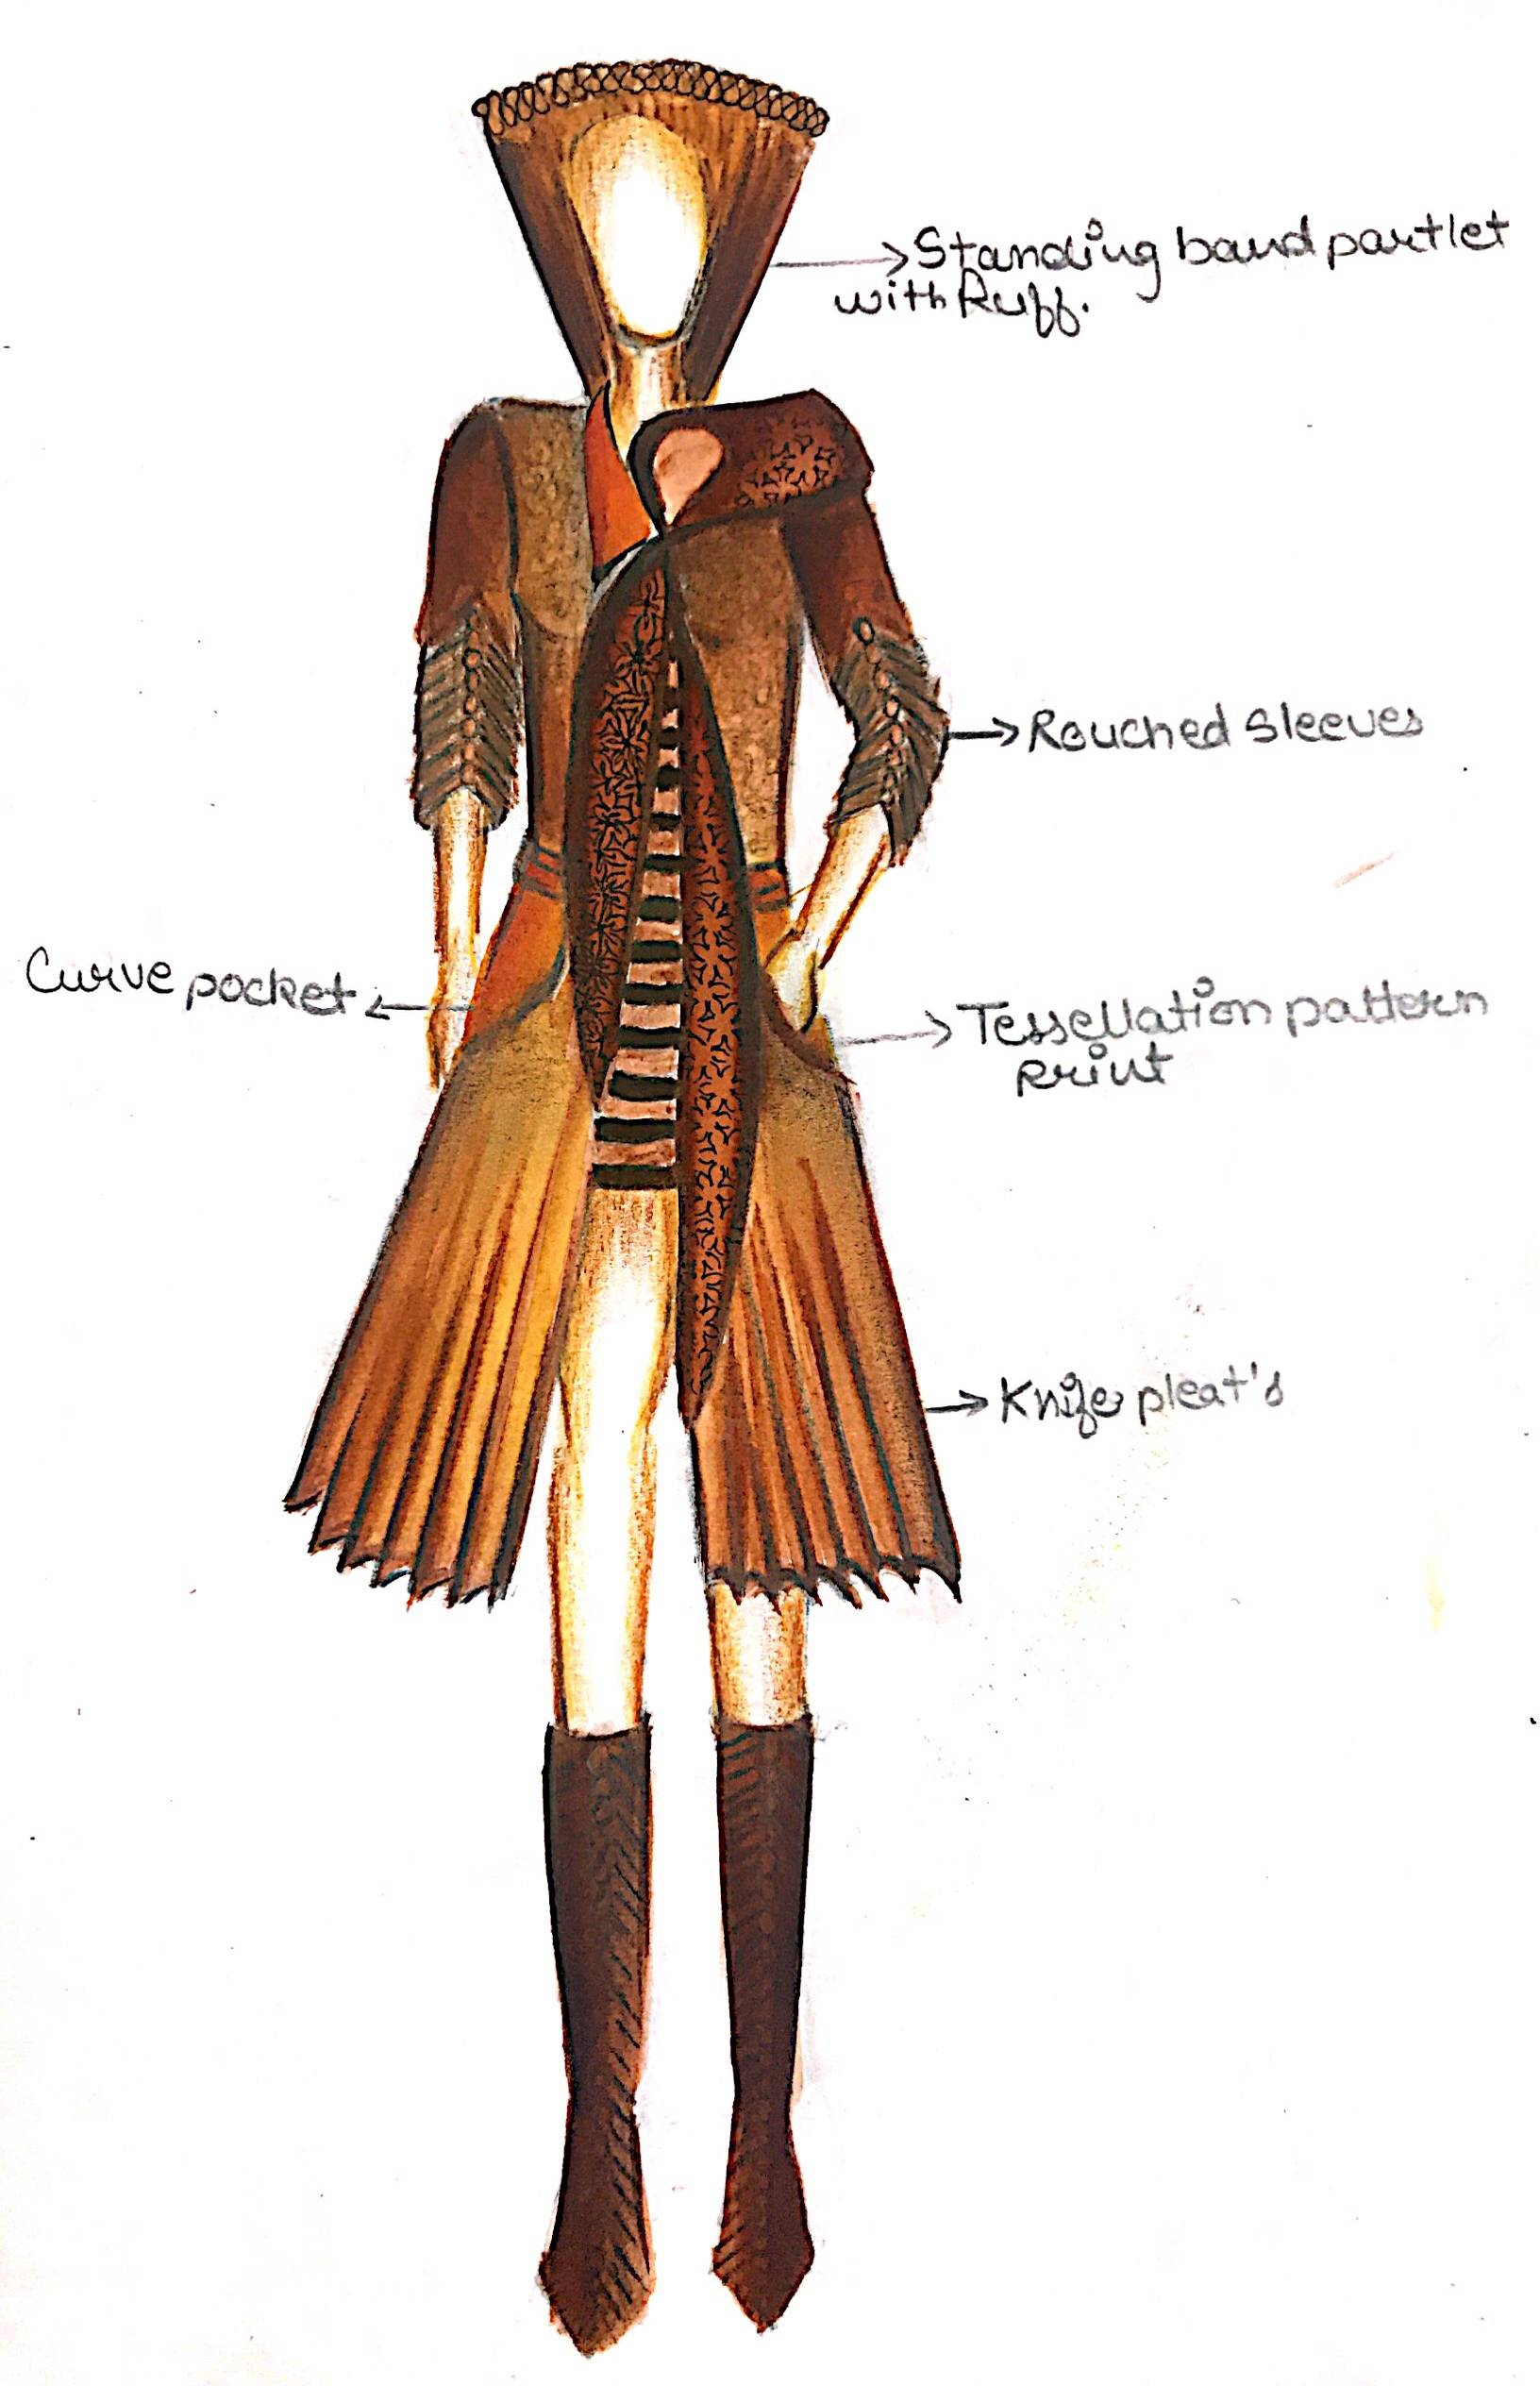 Standing band partlet
with Ruff.
Rouched sleeves
Curve pocket
Tessellation pattern
print
Knife pleat's